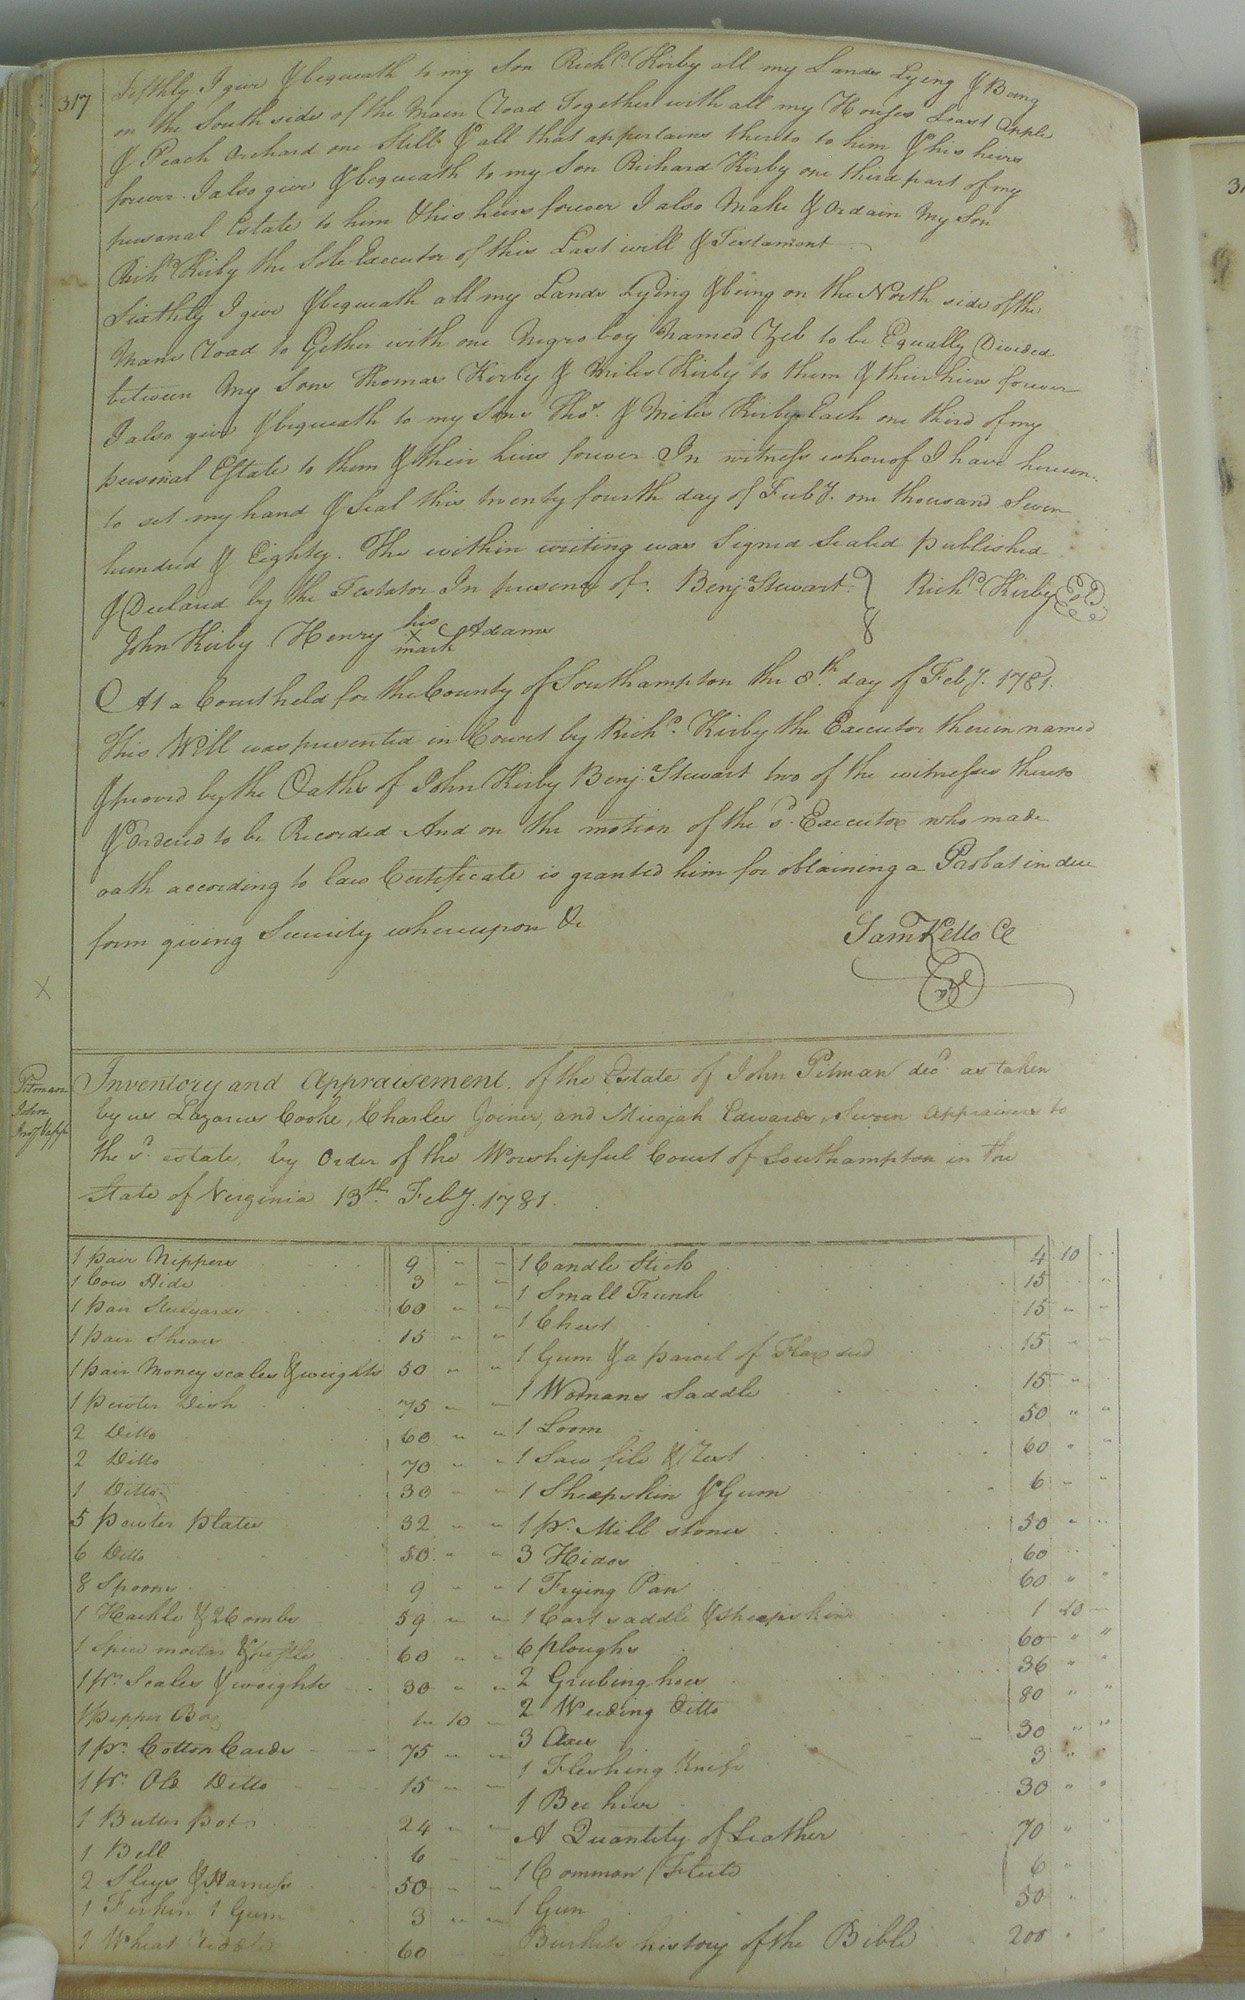 317
Fifthly I give & bequeath to my Son Rich.d Kirby all my Lands Lying & Being
on the South side of the Main Road Together with all my Houses Least Apple
& Peach Orchard one Still & all that appertains thereto to him & his heirs
forever. I also give & bequeath to my Son Richard Kirby one third part of my
personal Estate to him & his heirs forever I also Make & Ordain My Son
Rich.d Kirby the Sole Executor of this Last will & Testament
Sixthly I give & bequeath all my Lands Lying & being on the North side of the
Mane Road to Gether with one Negro boy Named Zeb to be Equally Divided
between My Sons Thomas Kirby & Miles Kirby to them & their heirs forever
I also give & bequeath to my Sons Tho.s & Miles Kirby Each one third of my
personal Estate to them & their heirs forever In witness whereof I have hereun-
to set my hand & Seal this twenty fourth day of Feb.y. one thousand Seven
hundred & Eighty. The within writing was Signed Sealed published
& Declared by the Testator In presence of. Benj.a Stewart. Rich.d Kirby
John Kirby Henry his x mark Adams
At a Court held for the County of Southampton the 8.th day of Feb.y. 1781.
This Will was presented in Court by Rich.d Kirby the Executor therein named
& proved by the Oaths of John Kirby Benj.a Stewart two of the witnesses thereto
& Ordered to be Recorded And on the motion of the s.d Executor who made
oath according to law Certificate is granted him for obtaining a Probat in due
form giving Security whereupon &c
Sam Kello Cl
X
Pitman
John
Inv.y &
Inventory and Appraisement, of the Estate of John Pitman dec.d as taken
by us Lazarus Cooke, Charles Joiner, and Micajah Edwards, Sworn Appraisers to
the s.d estate, by Order of the Worshipful Court of Southampton in the
State of Virginia 13.th Feb.y. 1781.
1 pair Nippers 9 " "
1 Cow Hide 3 " "
1 pair Steelyards 60 " "
1 pair Shears 15 " "
1 pair Money scales & weights 50 " "
1 pewter Dish 75 " "
2 Ditto 60 " "
2 Ditto 70 " "
1 Ditto 30 " "
5 pewter plates 32 " "
6 Ditto 50 " "
8 Spoons 9 " "
1 Hackle & 2 Combs 59 " "
1 Spice mortar & pestle 60 " "
1 p.r Scales & weights 30 " "
1 pepper Box 1 10
1 p.r Cotton Cards 75 " "
1 p.r Old Ditto 15 " "
1 Butter pot 24 " "
1 Bell 6 " "
2 Slays & Harness 50 " "
1 Firkin 1 Gum 3 " "
1 Wheat 60
1 Candle Stick 4 10
1 Small Trunk 15 "
1 Chest 15 " "
1 Gum & a parcel of Flax seed 15 " "
1 Womans Saddle 15 "
1 Loom 50 " "
1 Saw file & Rest 60 " "
1 Sheepskin & Gum 6 " "
1 p.r Mill stones 50 " "
3 Hides 60
1 Frying Pan 60 " "
1 Cart saddle & sheepskin 1 10
6 ploughs 60 " "
2 Grubing hoes 36 " "
2 Weeding Ditto 80 " "
3 Axes 30 " "
1 Fleshing Knife 3 "
1 Bee hive 30 " "
A Quantity of Leather 70 "
1 Common Flute 6 "
1 Gun 50
history of the Bible 200 "